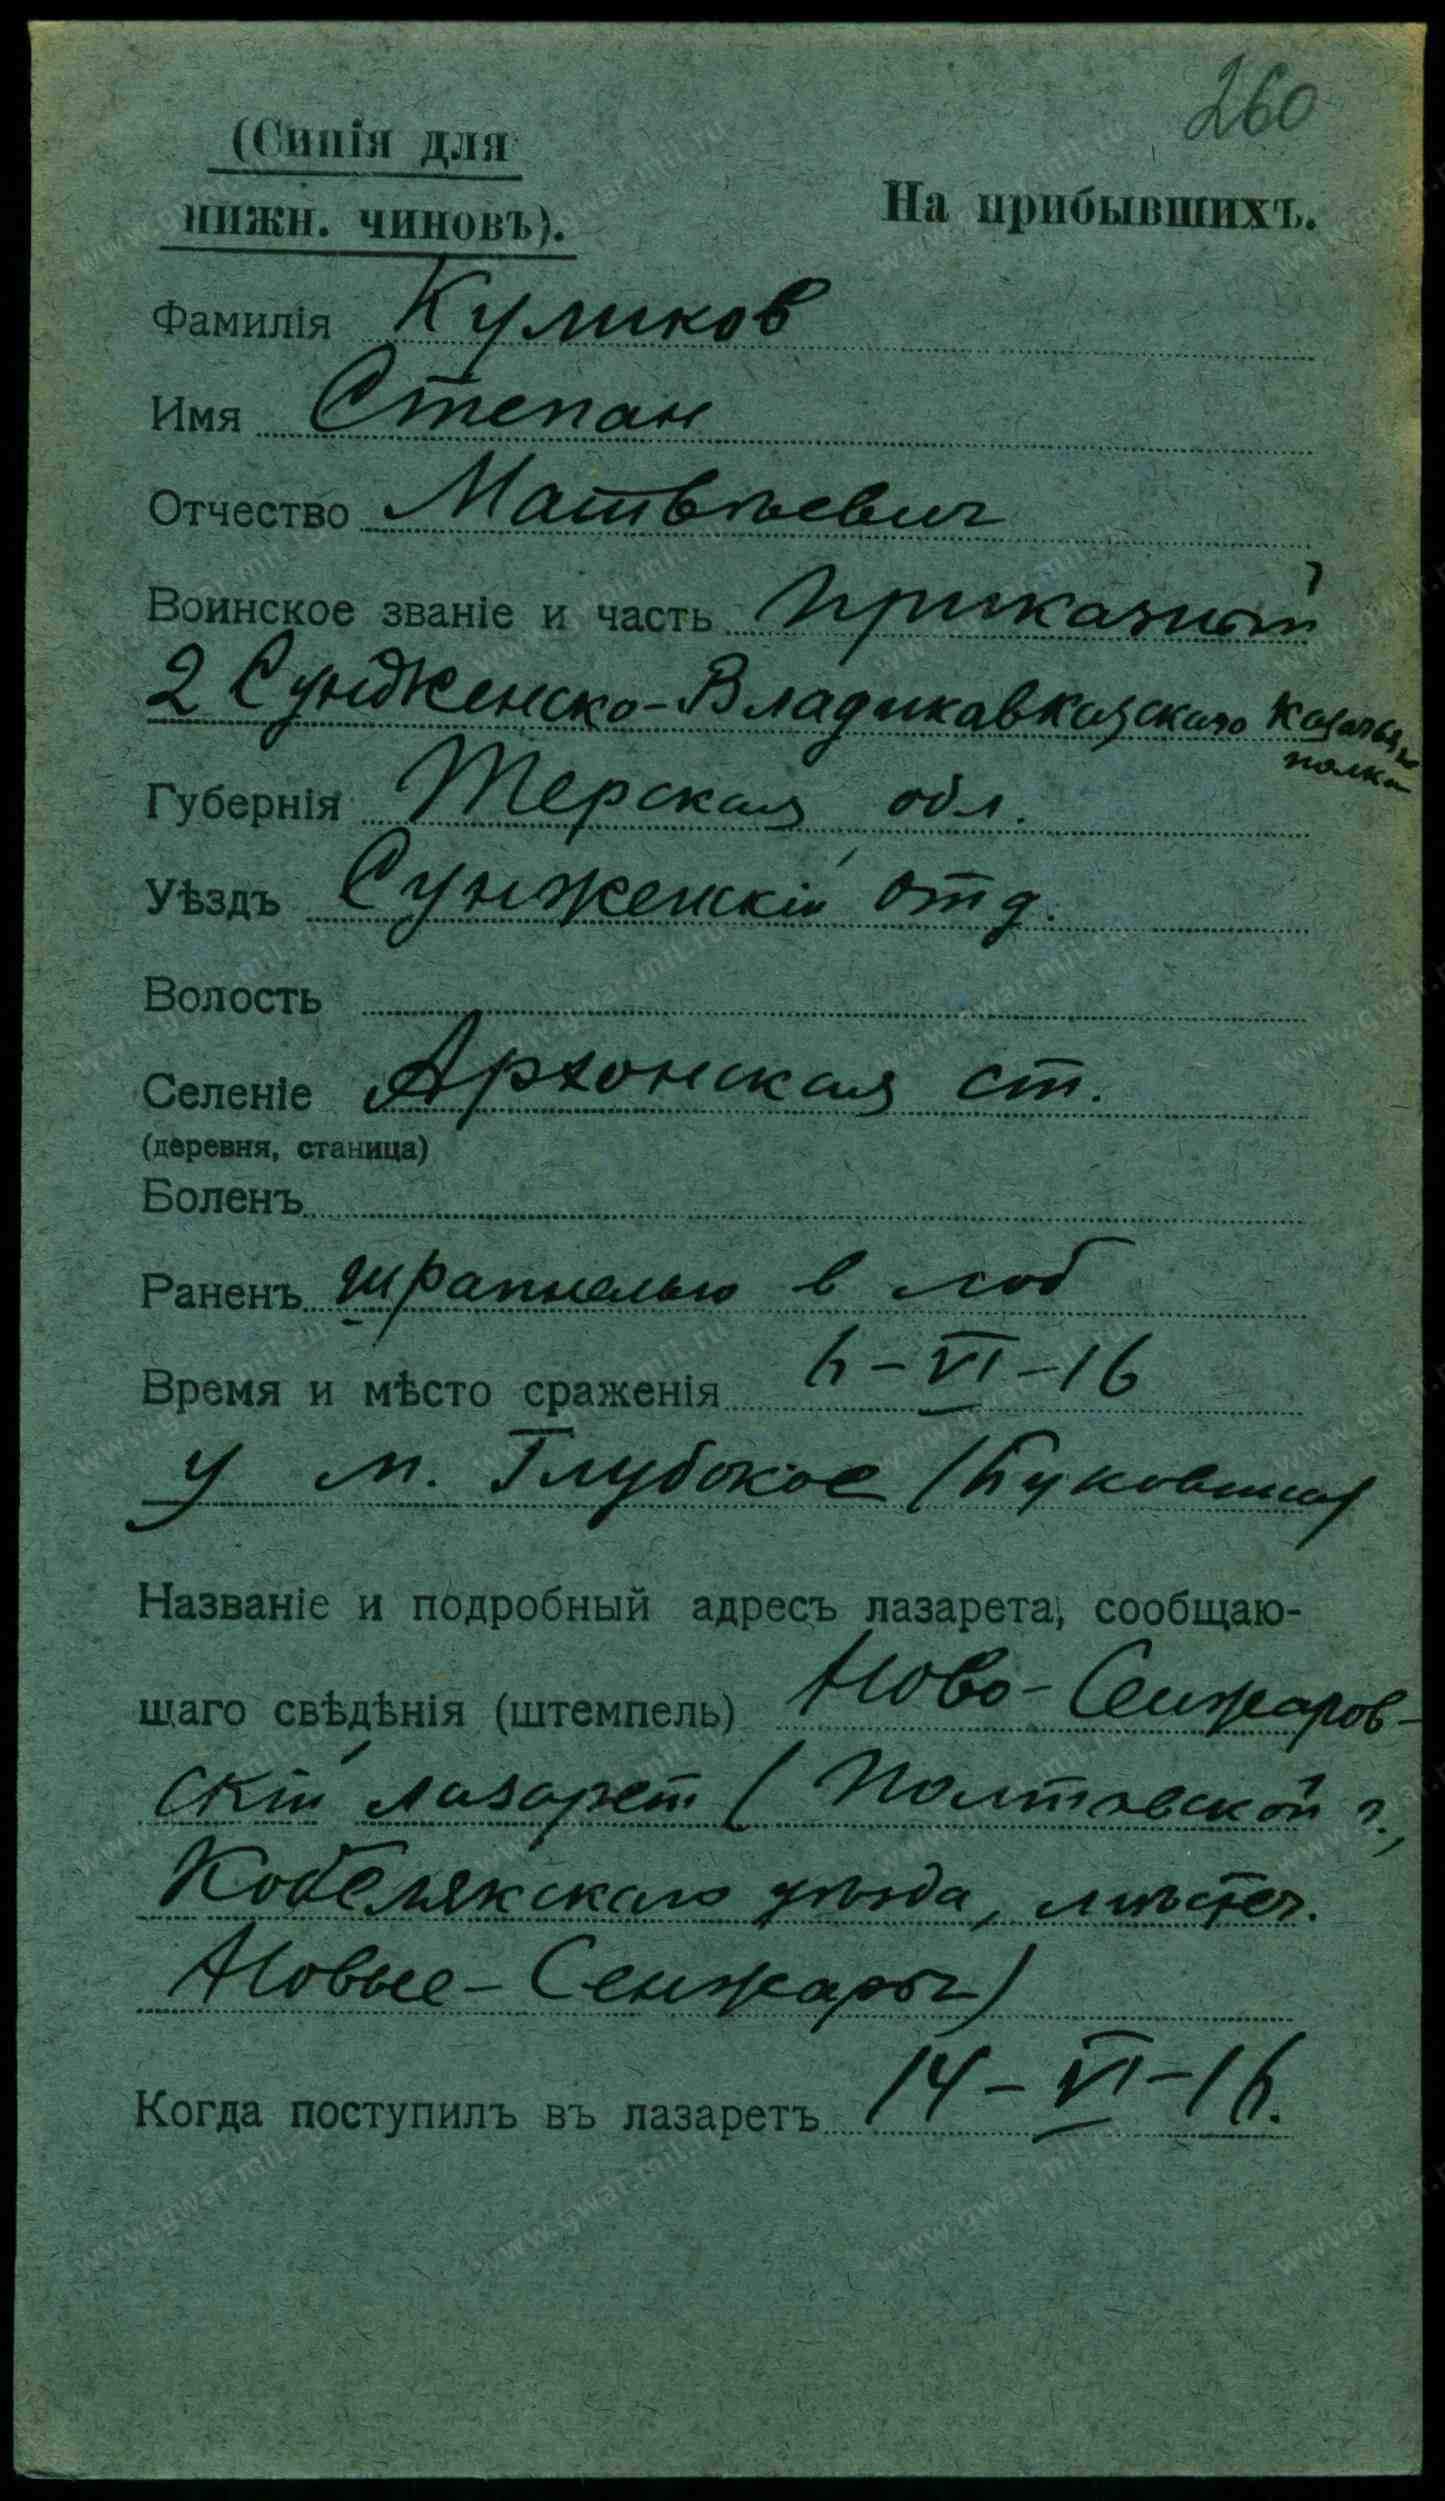 260
(Синія для
нижн. чиновъ).
На прибывшихъ.
Фамилія Куликов
Имя Степан
Отчество Матвѣевич
Воинское званіе и часть приказный
2 Сунженско-Владикавказскаго казачьяго
полка
Губернія Терская обл.
Уѣздъ Сунженскій отд.
Волость
Селеніе Архонская ст.
(деревня, станица)
Боленъ
Раненъ шрапнелью в лоб
Время и мѣсто сраженія 6-VI-16
у м. Глубокое (Буковина)
Названіе и подробный адресъ лазарета, сообщаю-
щаго свѣдѣнія (штемпель) Ново-Сенжаров-
скій лазарет (Полтавской г.,
Кобелякскаго уѣзда, мѣстеч.
Новые-Сенжары)
Когда поступилъ въ лазаретъ 14-VI-16.
www.gwar.mil.ru